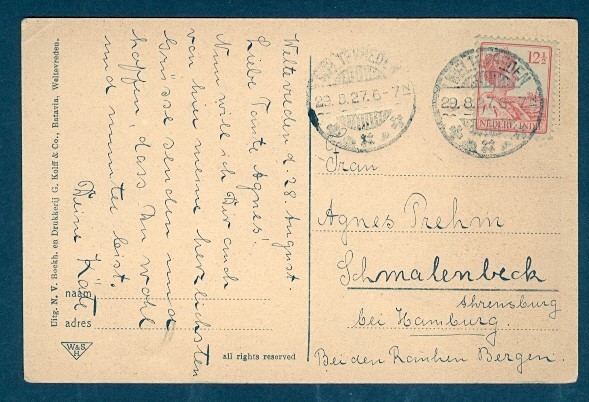 Weltevreden d. 28. August.
Liebe Tante Agnes!
Nun will ich Dir auch
von hier meine herzlichsten
Grüsse senden und
hoffen, dass Du wohl
und munter bist.
Deine Käte
naam
adres
Uitg. N. V. Boekh. en Drukkerij G. Kolff & Co., Batavia, Weltevreden.
W&S.
H
all rights reserved
WELTEVREDEN
29.8.27.6-7N
WELTEVREDEN
29.8.
12½
NEDERL. INDIË
Frau
Agnes Prehm
Schmalenbeck
Ahrensburg
bei Hamburg.
Bei den Rauhen Bergen.